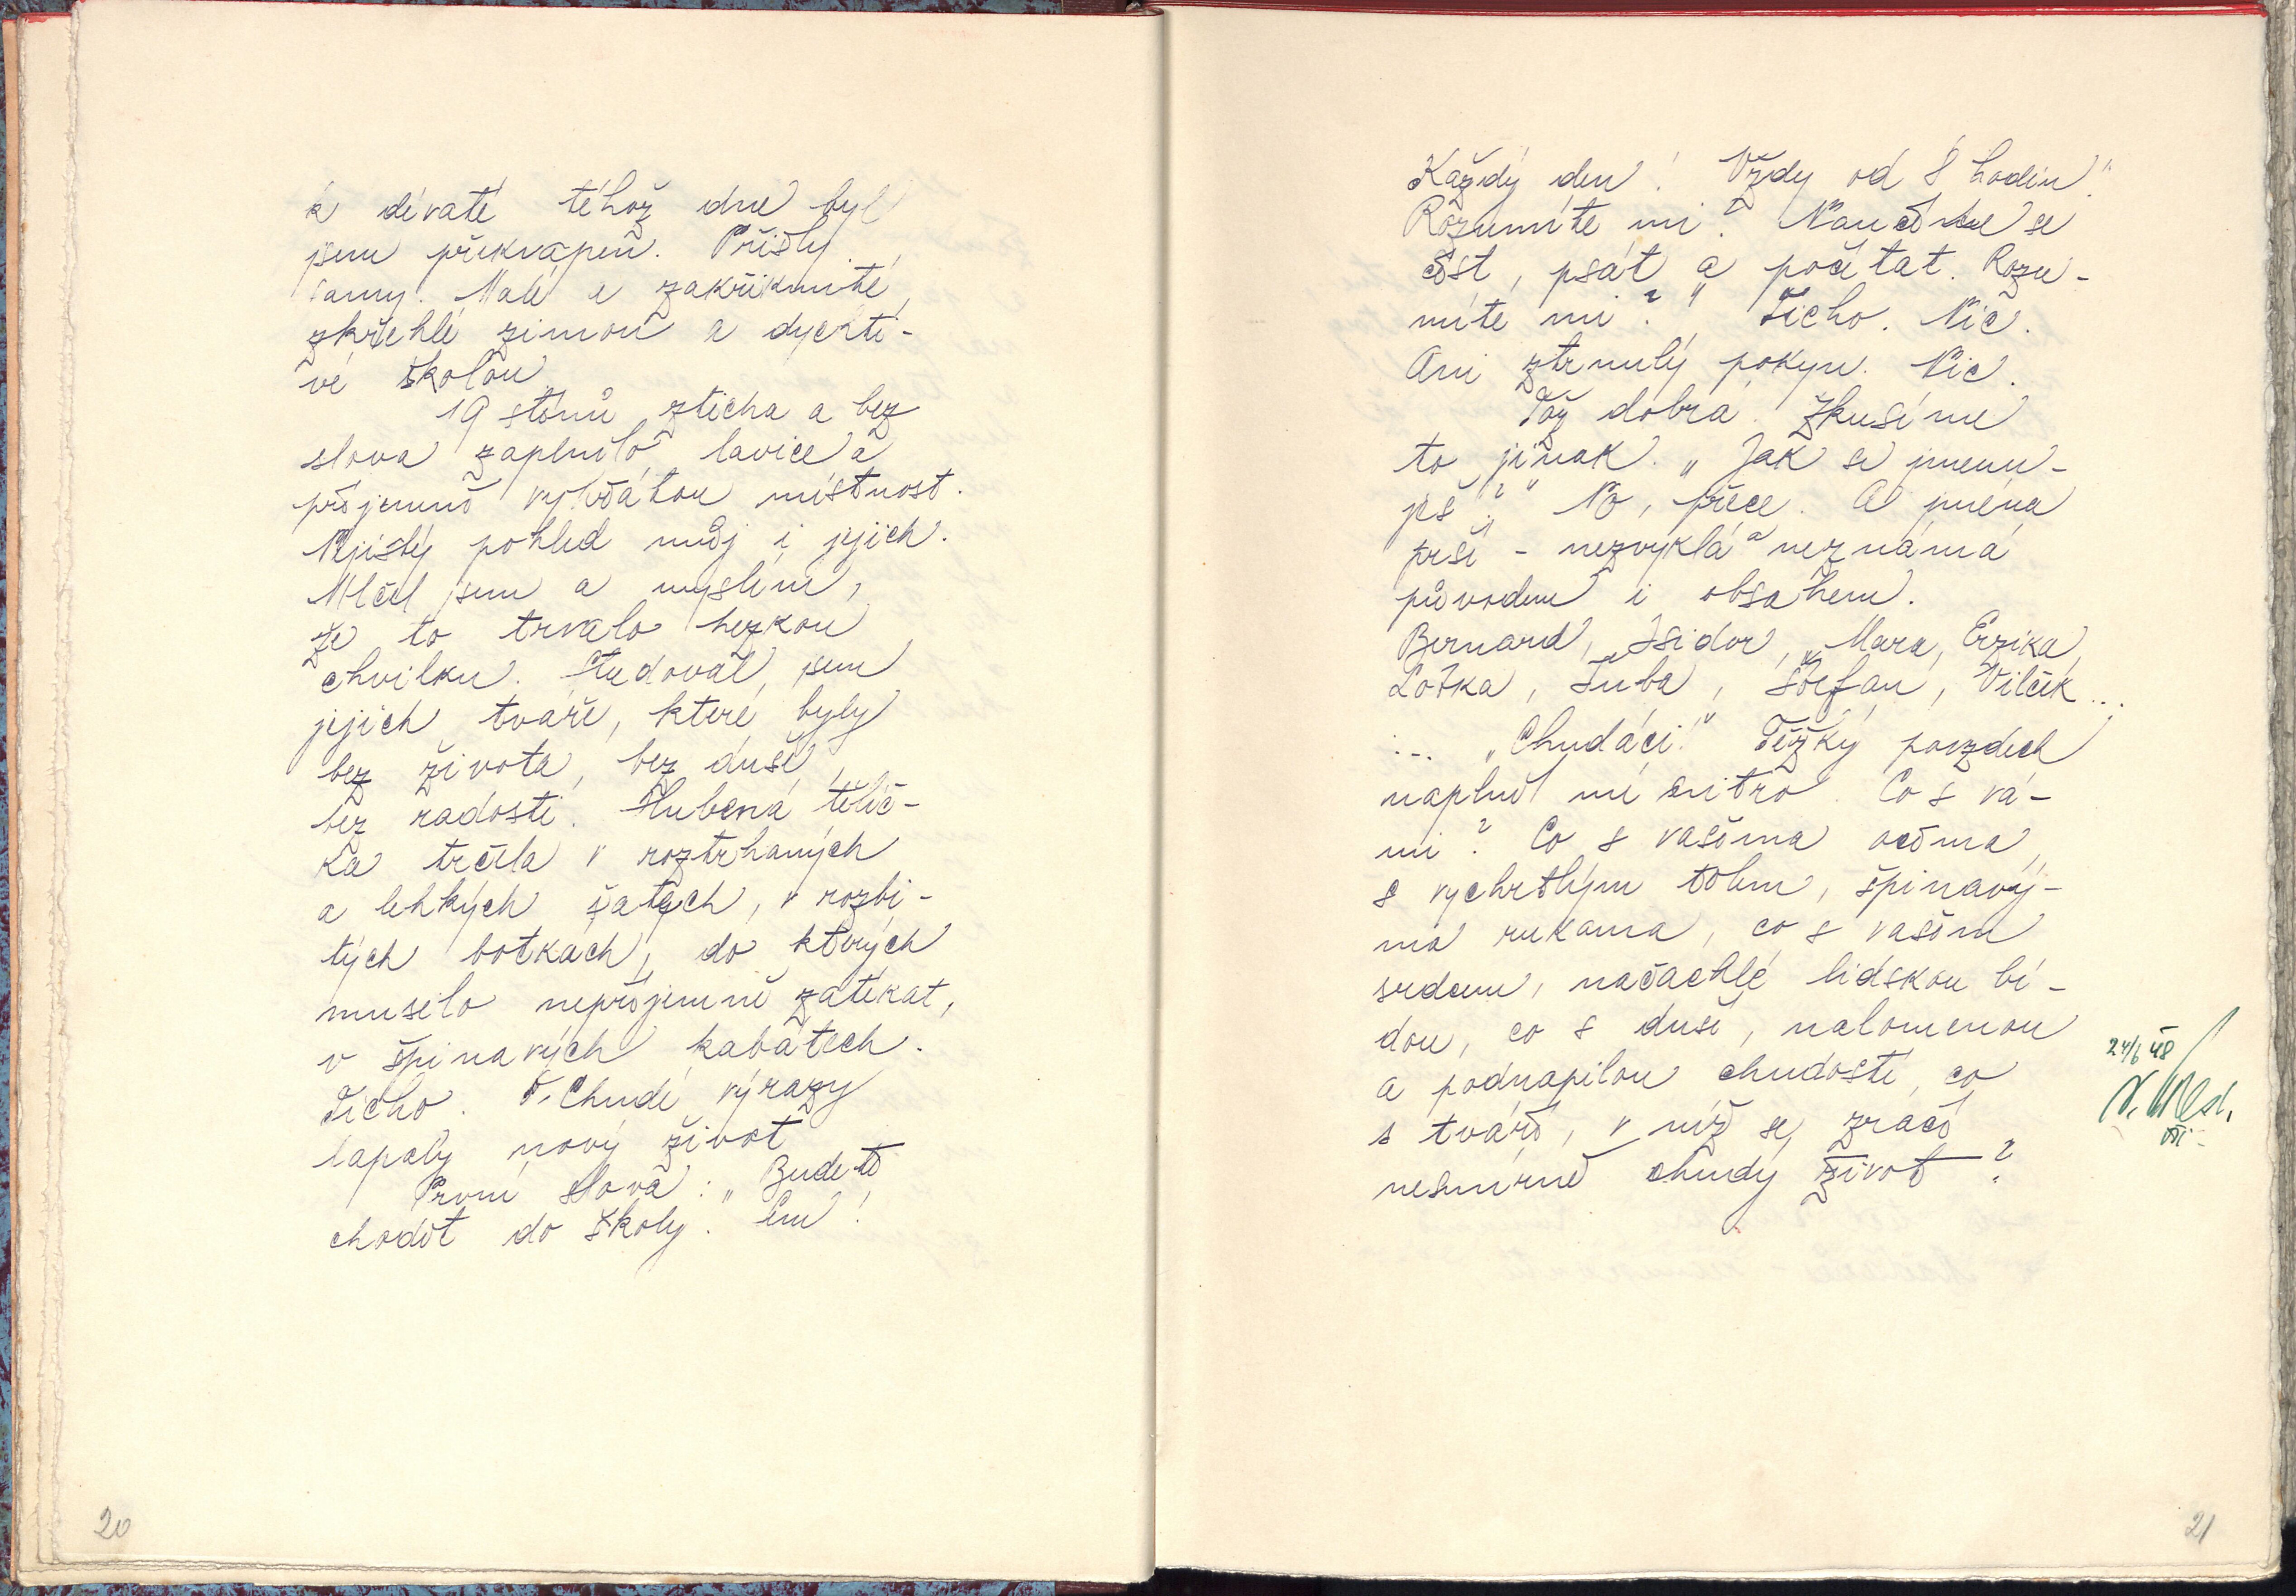 k deváté téhož dne byl
jsem překvapen. Přišly
samy. Malé a zakřiknuté,
zkřehlé zimou a dychti-
vé školou.
19 stínů zticha a bez
slova zaplnilo lavice a
příjemně vyhřátou místnost.
Nejistý pohled můj i jejich.
Mlčel jsem a myslím,
že to trvalo hezkou
chvilku. Studoval jsem
jejich tváře, které byly
bez života, bez duše,
bez radosti. Hubená tělíč-
ka trčela v roztrhaných
a lehkých šatech, v rozbi-
tých botkách, do kterých
muselo nepříjemně zatékat,
v špinavých kabátech.
Ticho. Chudé výrazy
lapaly nový život
První slova: „Budete
chodit do školy. Sem!
20
Každý den! Vždy od 8 hodin!"
Rozumíte mi? Naučíme se
číst, psát a počítat. Rozu-
míte mi?" Ticho. Nic.
Ani ztrnulý pokyn. Nic.
Tož dobrá. Zkusíme
to jinak. „Jak se jmenu-
ješ?" No, přece. A jména
prší - nezvyklá a neznámá
původem i obsahem.
Bernard, Isidor, Mara, Erzika,
Lotka, Šuba, Štefan, Vilček...
... „Chudáci!" Těžký povzdech
naplnil mé nitro. Co s vá-
mi? Co s vašima očima,
s vychrtlým tělem, špinavý-
ma rukama, co s vaším
srdcem, načachlé lidskou bí-
dou, co s duší, nalomenou
a podnapilou chudostí, co
s tváří, v níž se zračí
nesmírně chudý život?
24/6 48
21